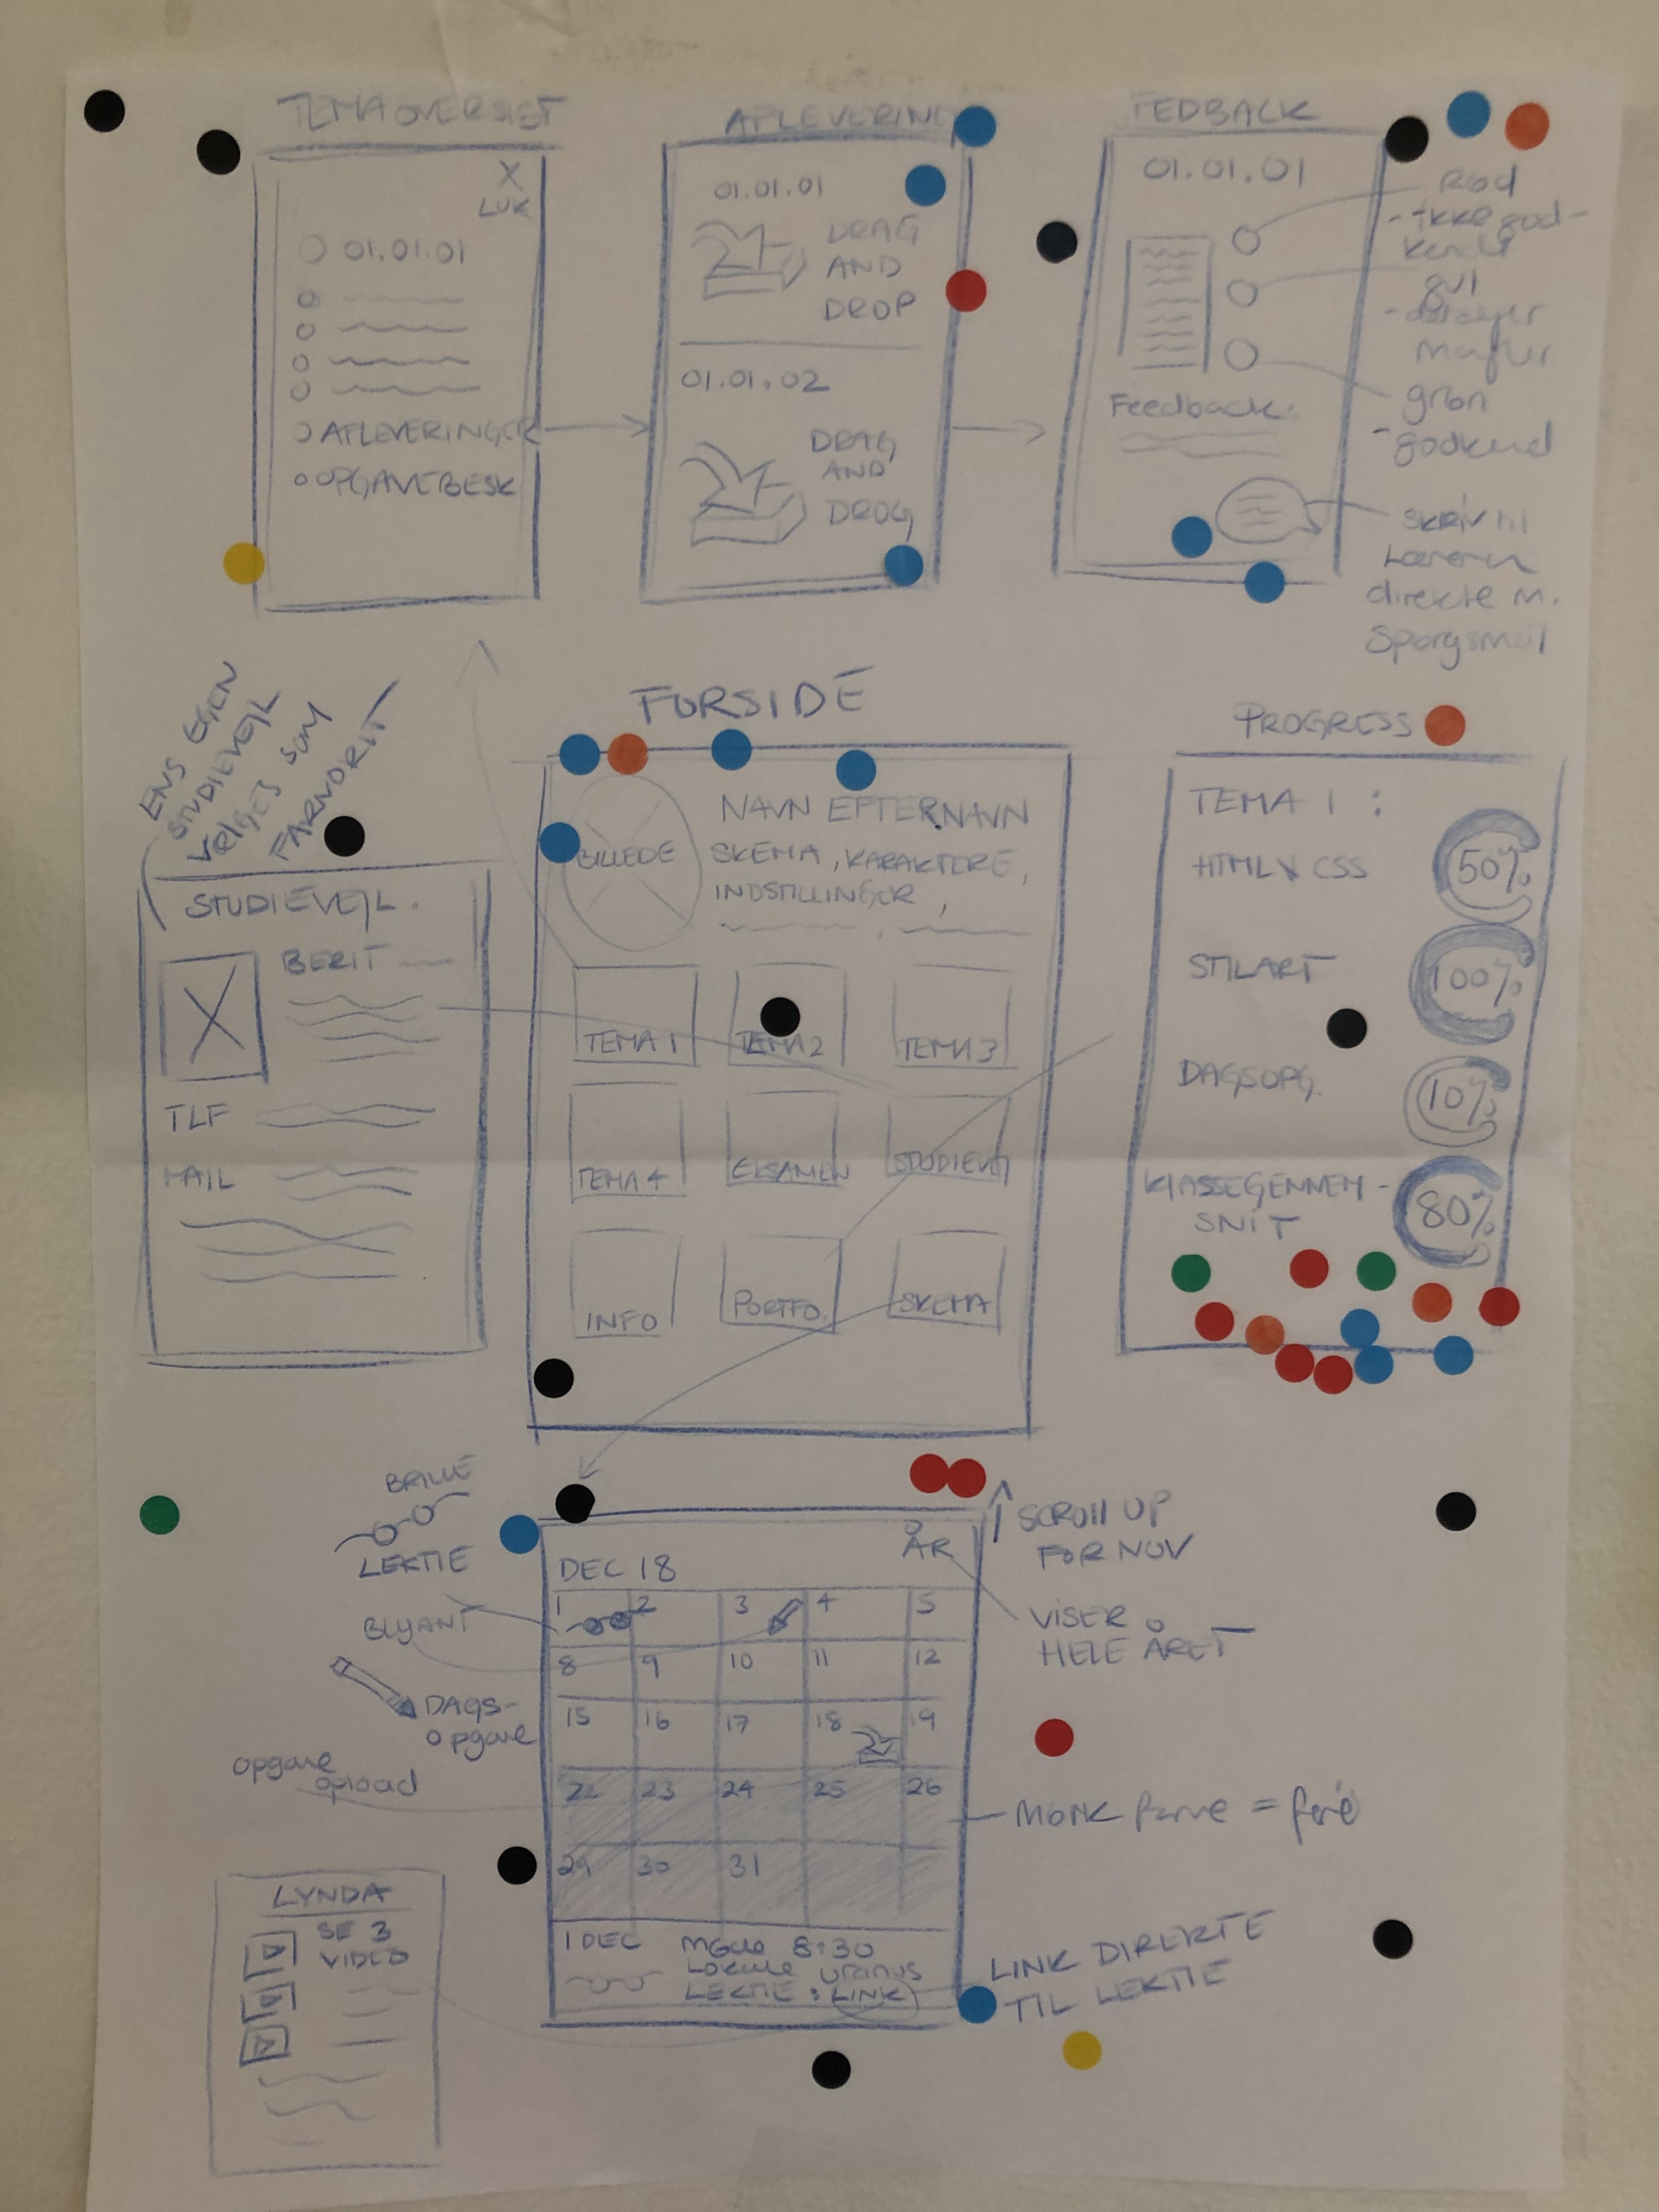 TEMAOVERSIGT
X
LUK
01.01.01
AFLEVERINGER
OPGAVEBESK
AFLEVERING
01.01.01
DRAG
AND
DROP
01.01.02
DRAG
AND
DROG
FEDBACK
01.01.01
Feedback
Rød
- ikke god-
kendt
gul
mangler
grøn
- godkend
SKRIV til
Læreren
direkte m.
Spørgsmål
ENS EGEN
STUDIEVEJL
VELGES SOM
FARVORIT
STUDIEVEJL.
BERIT
TLF
MAIL
FORSIDE
BILLEDE
NAVN EFTERNAVN
SKEMA, KARAKTERE,
INDSTILLINGER,
TEMA 1
TEMA 2
TEMA 3
TEMA 4
EKSAMEN
STUDIEVEJ
INFO
PORTFO.
SKEMA
PROGRESS
TEMA 1 :
HTML & CSS
50%
STILART
100%
DAGSOPG.
10%
KLASSEGENNEM-
SNIT
80%
BRILLE
LEKTIE
BLYANT
DAGS-
opgave
opgave
upload
DEC 18
ÅR
1 2 3 4 5
8 9 10 11 12
15 16 17 18 19
22 23 24 25 26
29 30 31
1 DEC
Møde 8:30
Lokale uranus
LEKTIE : LINK
SCROLL UP
FOR NOV
VISER
HELE ÅRET
MØRK farve = ferie
LINK DIREKTE
TIL LEKTIE
LYNDA
SE 3
VIDEO